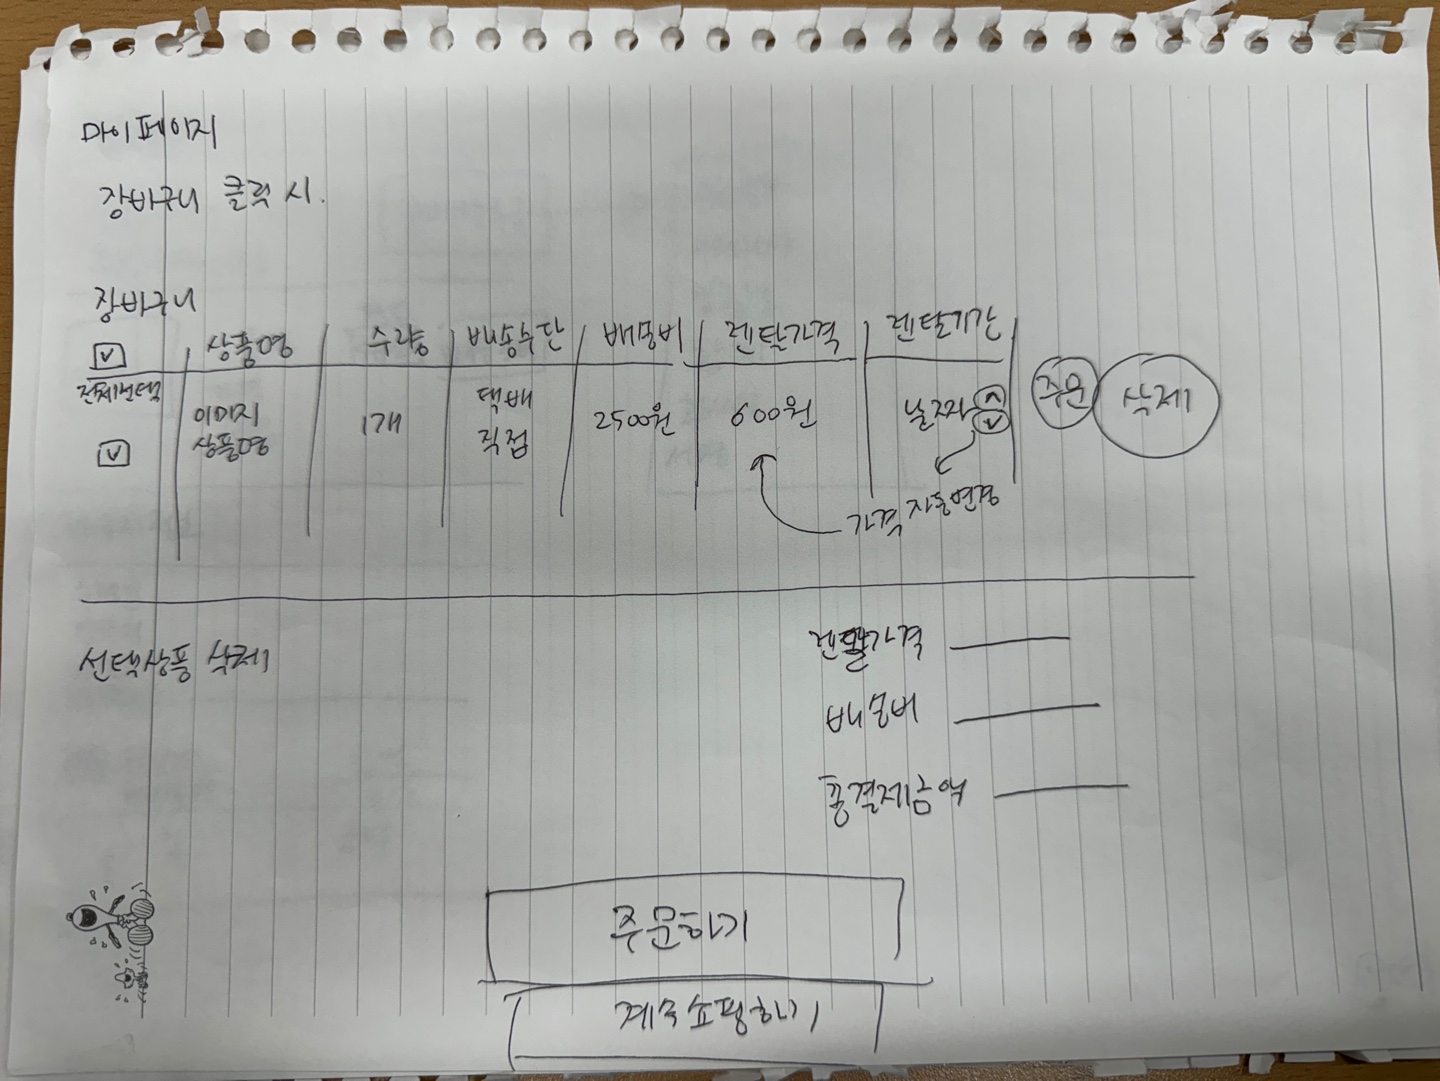 마이페이지
장바구니 클릭 시.
장바구니
상품명 수량 배송수단 배송비 렌탈가격 렌탈기간
전체선택
이미지 상품명 1개 택배 직접 2500원 600원 날짜 주문 삭제
가격 자동변경
선택상품 삭제
렌탈가격
배송비
총결제금액
주문하기
계속쇼핑하기